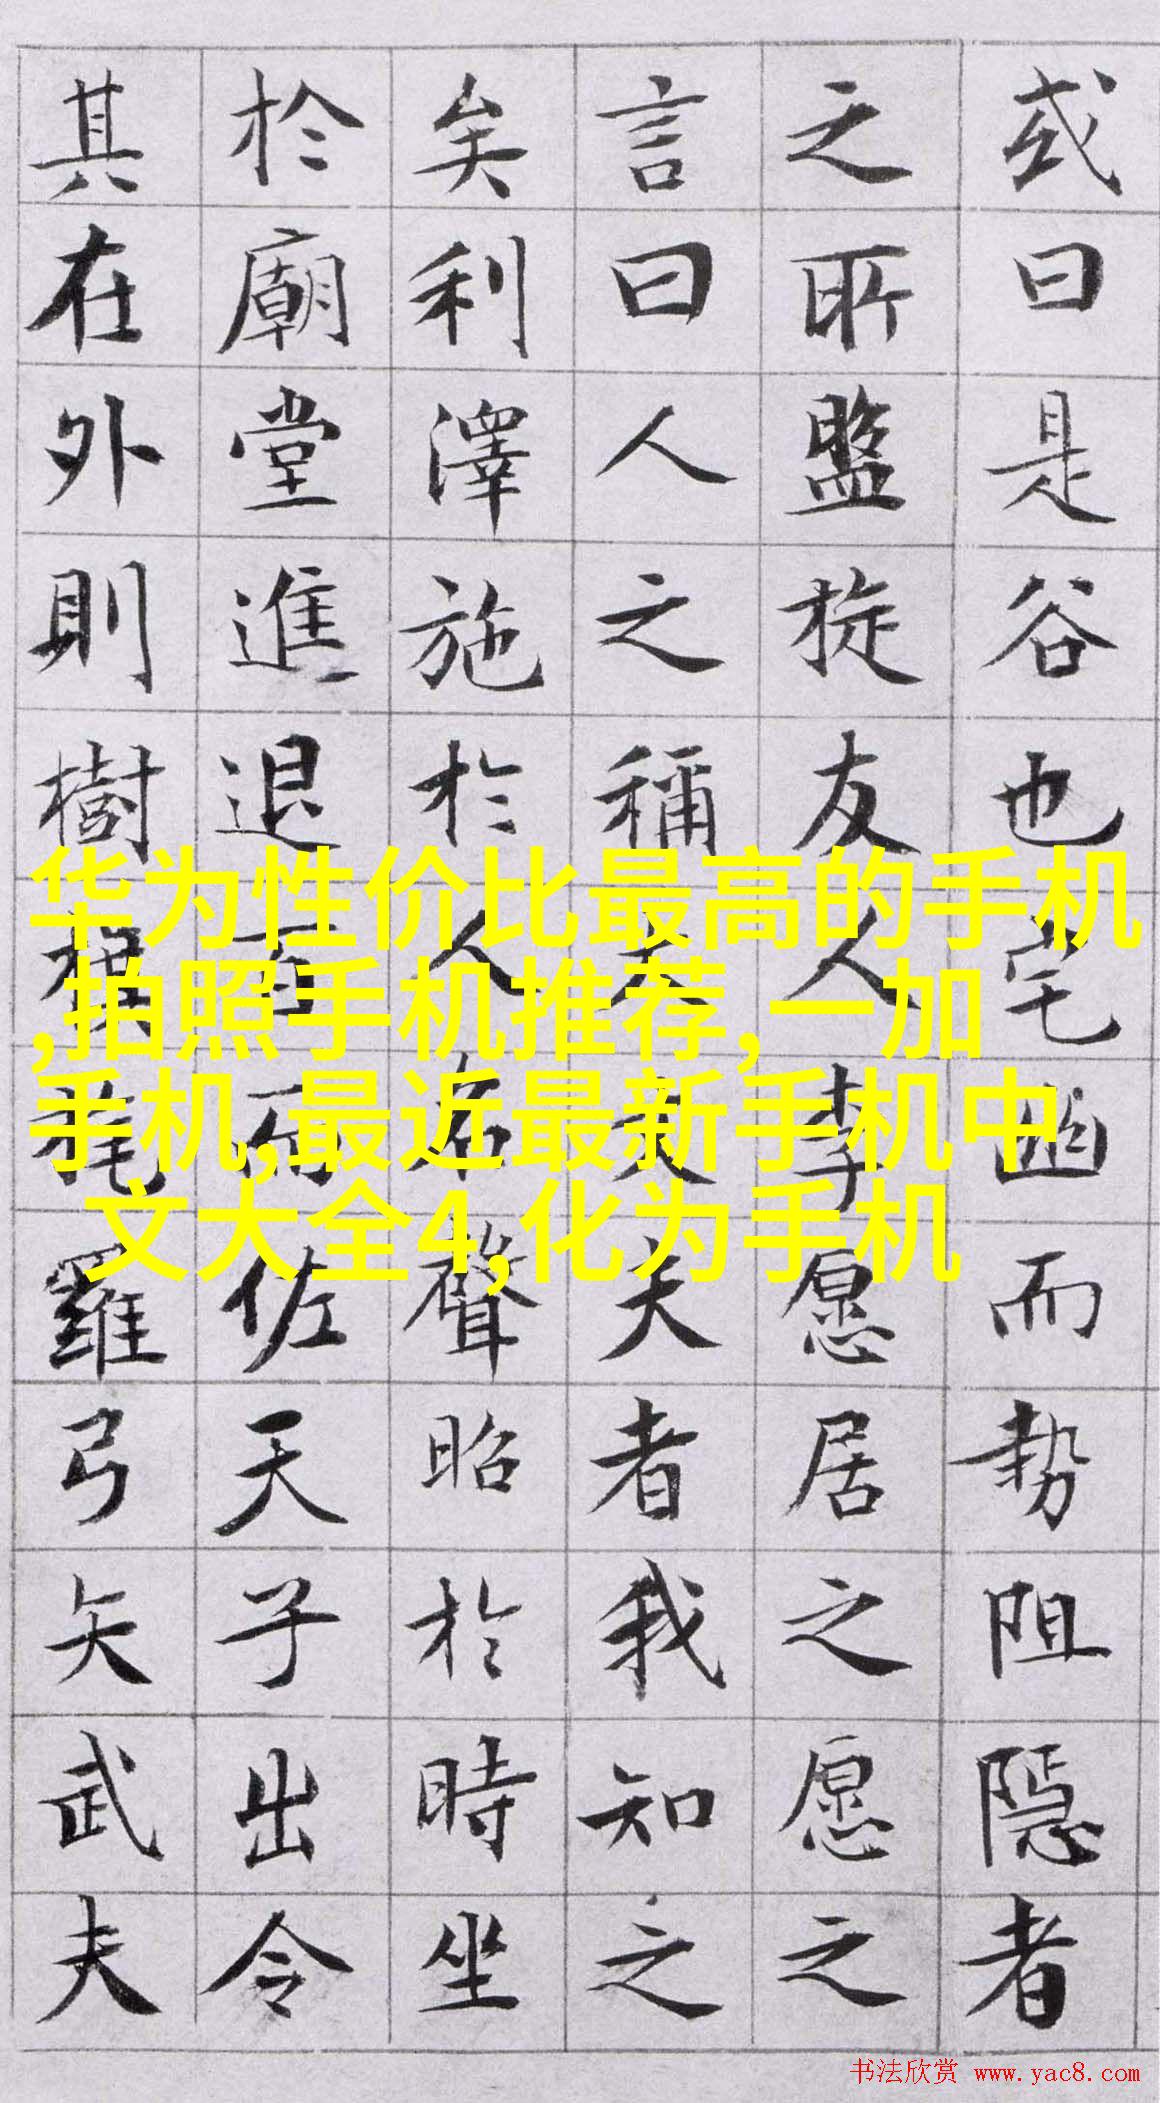 或曰是谷也宅幽而势阻隐者
之所盤旋友人李愿居之愿之
言曰人之稱大丈夫者我知之
矣利澤施於人名聲昭於時坐
於廟堂進退百而佐天子出令
其在外則樹旗旄羅弓矢武夫
华为性价比最高的手机
,拍照手机推荐,一加
手机,最近最新手机中
文大全4,化为手机
书法欣赏 www.yac8.com